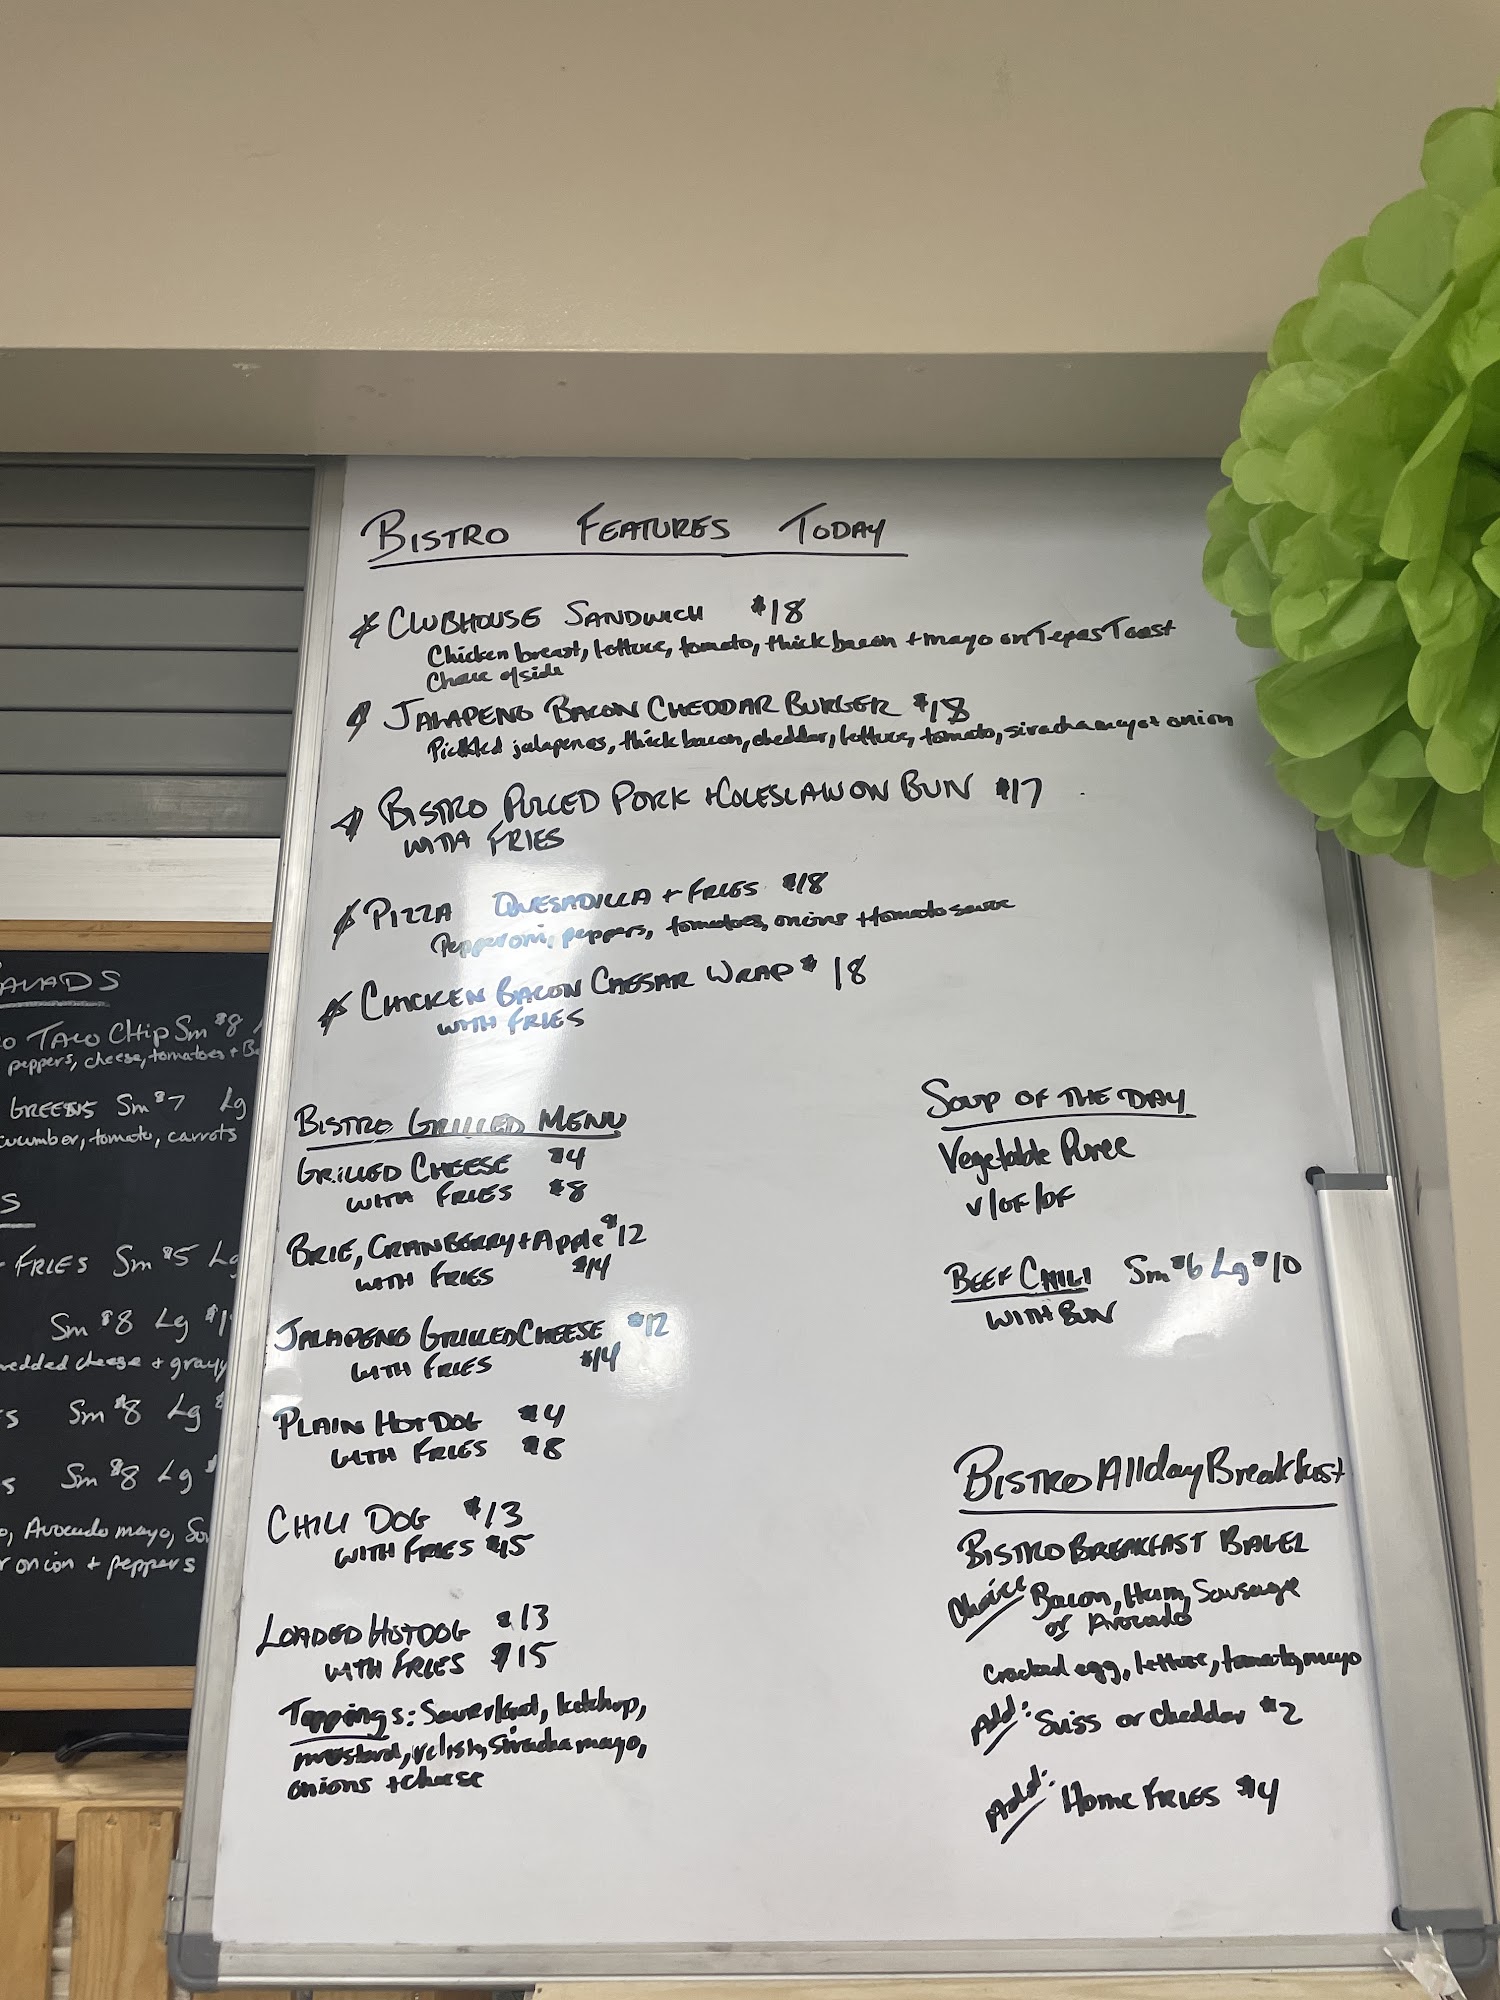 BISTRO FEATURES TODAY
* CLUBHOUSE SANDWICH $18
Chicken breast, lettuce, tomato, thick bacon + mayo on Texas Toast
Choice of side
* JALAPENO BACON CHEDDAR BURGER $18
Pickled jalapenos, thick bacon, cheddar, lettuce, tomato, siracha mayo + onion
* BISTRO PULLED PORK + COLESLAW ON BUN $17
WITH FRIES
* PIZZA QUESADILLA + FRIES $18
Pepperoni, peppers, tomatoes, onions + tomato sauce
* CHICKEN BACON CAESAR WRAP $18
WITH FRIES
BISTRO GRILLED MENU
GRILLED CHEESE $4
WITH FRIES $8
BRIE, CRANBERRY + Apple $12
WITH FRIES $14
JALAPENO GRILLED CHEESE $12
WITH FRIES $14
PLAIN HOT DOG $4
WITH FRIES $8
CHILI DOG $13
WITH FRIES $15
LOADED HOTDOG $13
WITH FRIES $15
Toppings: Sauerkraut, ketchup,
mustard, relish, siracha mayo,
onions + cheese
SOUP OF THE DAY
Vegetable Puree
V/GF/DF
BEEF CHILI Sm $6 Lg $10
WITH BUN
BISTRO Allday Breakfast
BISTRO BREAKFAST BAGEL
Choice Bacon, Ham, Sausage
or Avocado
Cracked egg, lettuce, tomato, mayo
Add: Swiss or cheddar $2
Add: Home FRIES $4
TACO CHIP Sm $8
peppers, cheese, tomatoes +
GREENS Sm $7 Lg
cucumber, tomato, carrots
FRIES Sm $5 Lg
Sm $8 Lg
cheese + gravy
Sm $8 Lg
Sm $8 Lg
Avocado mayo,
onion + peppers